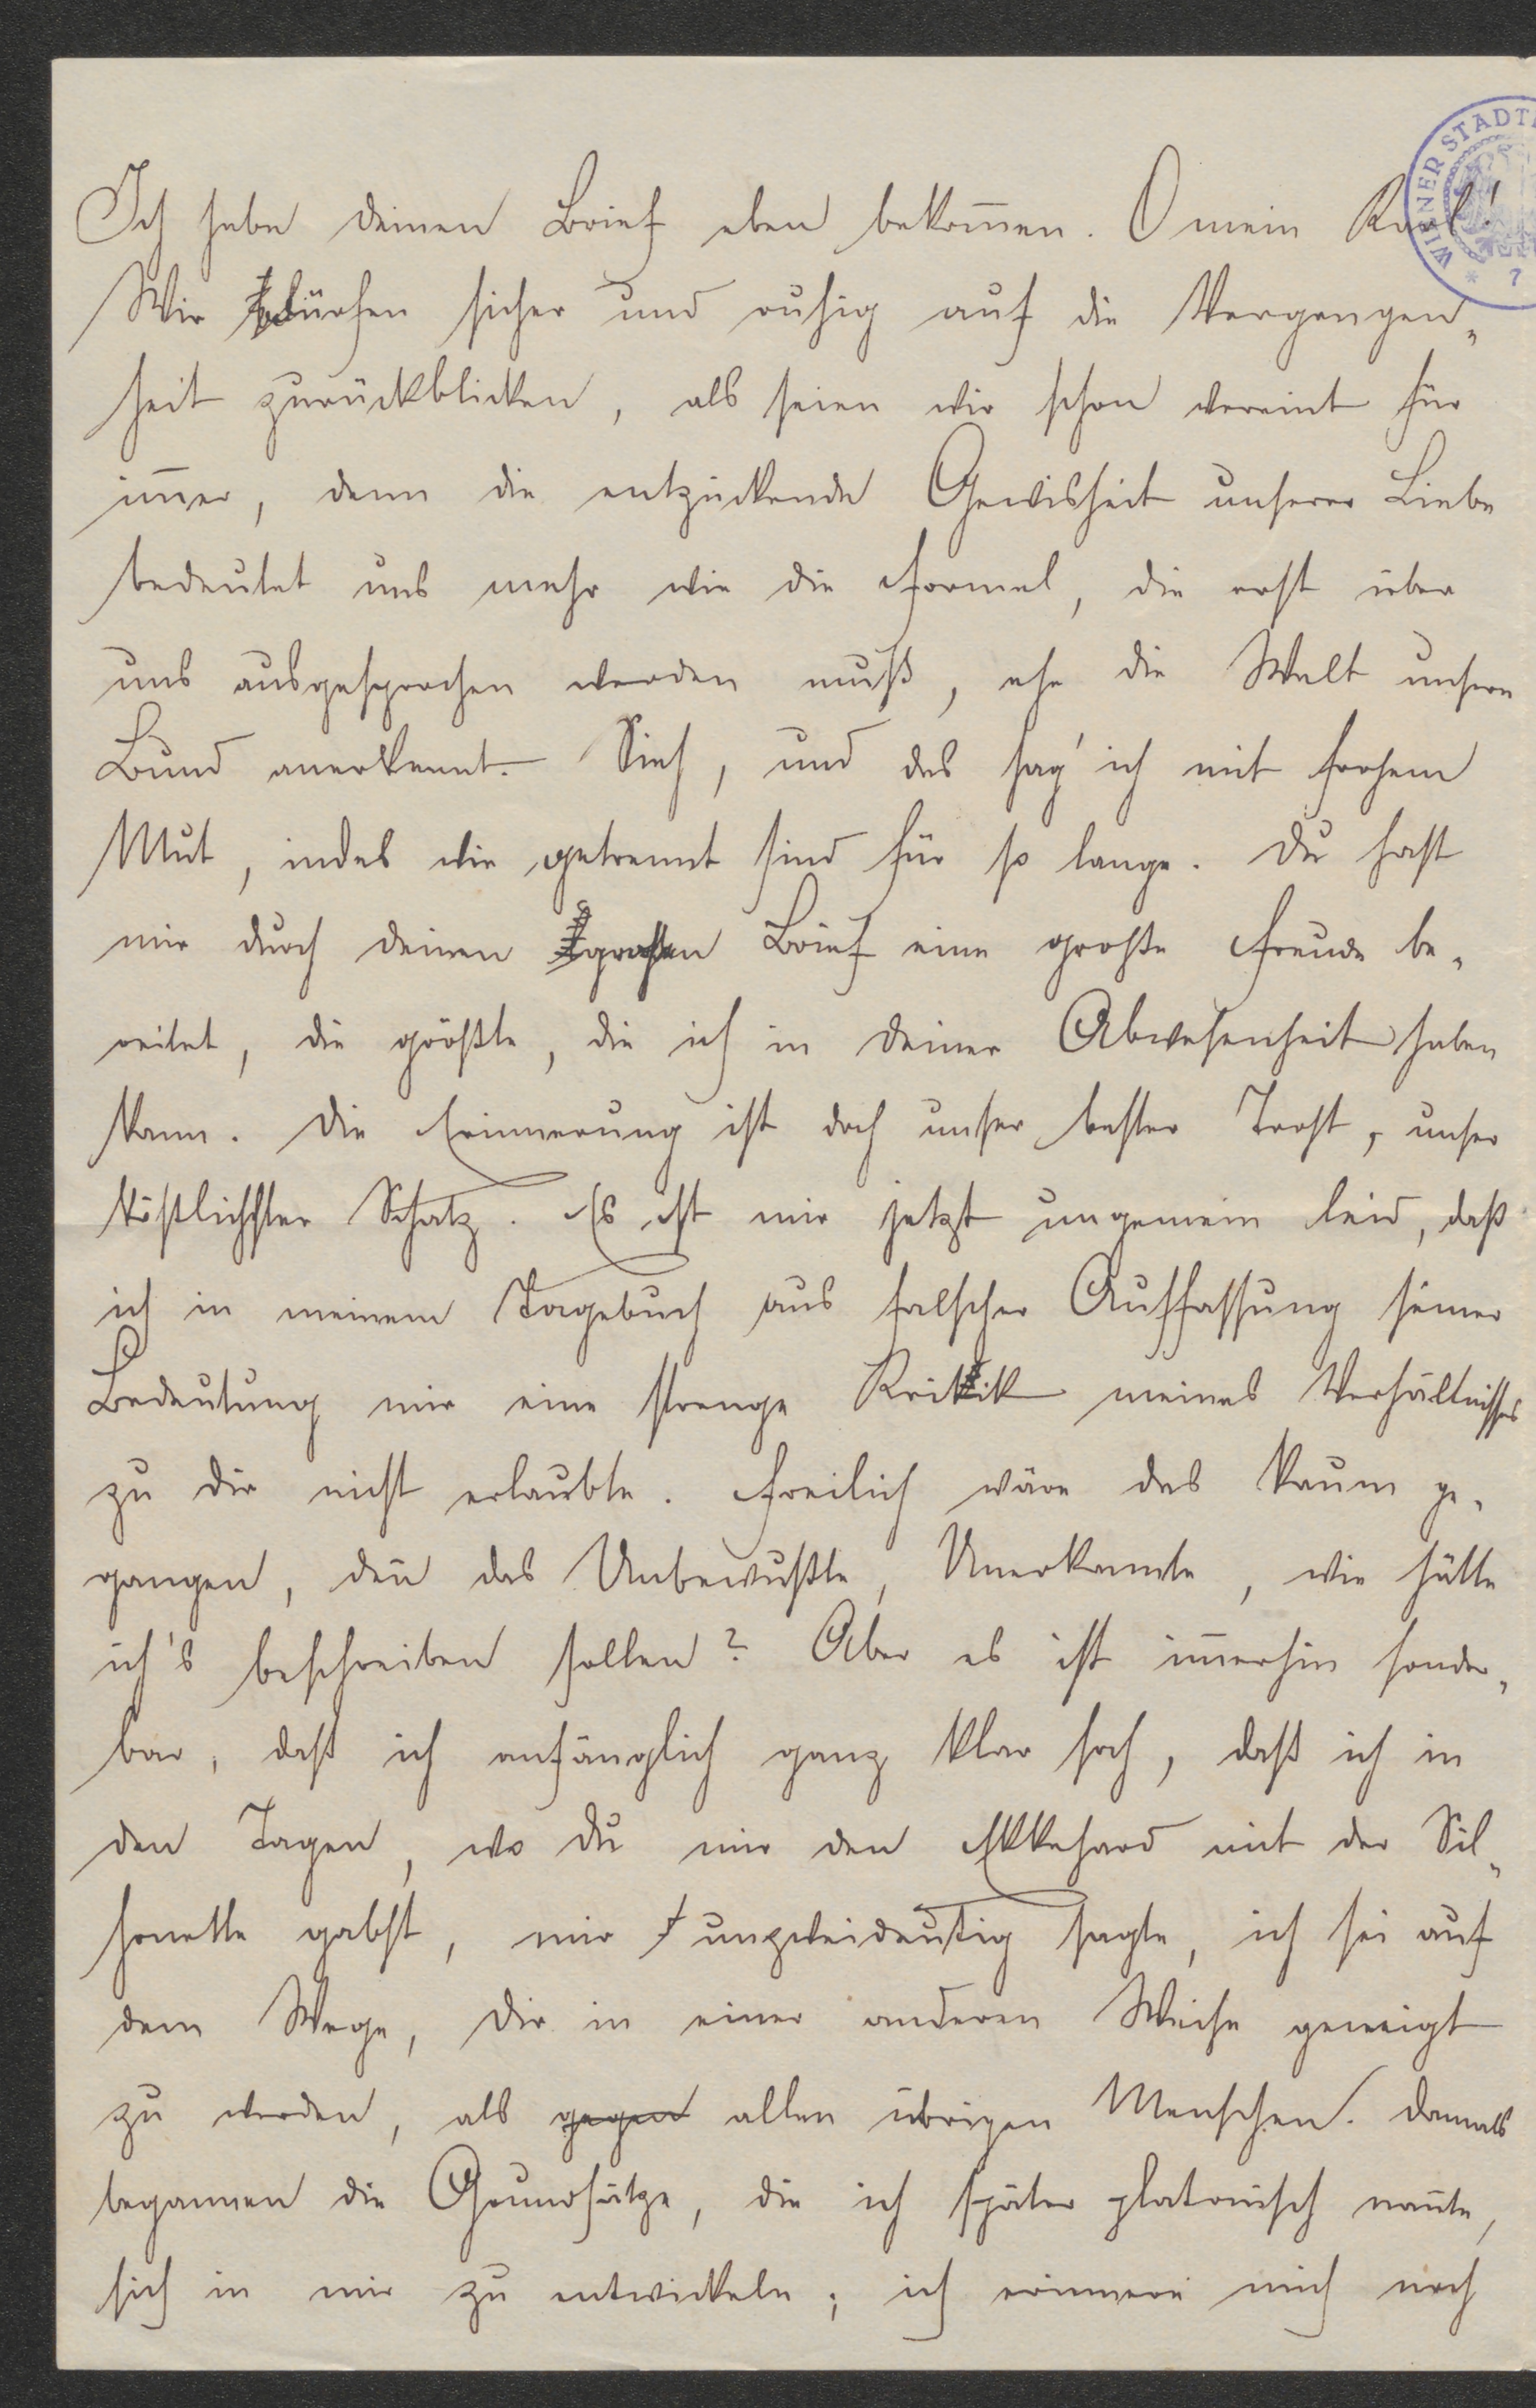 Ich habe deinen Brief eben bekom̄en. O mein Karl!
Wir dürfen sicher und ruhig auf die Vergangen„
heit zurückblicken, als seien wir schon vereint für
im̄er, denn die entzückende Gewisheit unserer Liebe
bedeutet uns mehr wie die Formel, die erst über
uns ausgesprochen werden muß, ehe die Welt unsern
Bund anerkennt. Sieh, und das sag' ich mit frohem
Mut, indes wir getrennt sind für so lange. Du hast
mir durch deinen großen Brief eine große Freude be„
reitet, die größte, die ich in deiner Abwesenheit haben
kann. Die Erinnerung ist doch unser bester Trost, unser
köstlichster Schatz. Es ist mir jetzt ungemein leid, daß
ich in meinem Tagebuch aus falscher Auffassung seiner
Bedeutung mir eine strenge Kritik meines Verhältnisses
zu dir nicht erlaubte. Freilich wäre das kaum ge„
gangen, den̄ das Unbewußte, Unerkannte, wie hätte
ich's beschreiben sollen? Aber es ist im̄erhin sonder„
bar, daß ich anfänglich ganz klar sah, daß ich in
den Tagen, wo du mir den Ekkehard mit der Sil„
houette gabst, mir unzweideutig sagte, ich sei auf
dem Wege, dir in einer anderen Weise geneigt
zu werden, als gegen allen übrigen Menschen. Damals
begannen die Grundsätze, die ich später platonisch nan̄te,
sich in mir zu entwickeln; ich erinnere mich noch
WIENER STADT
7